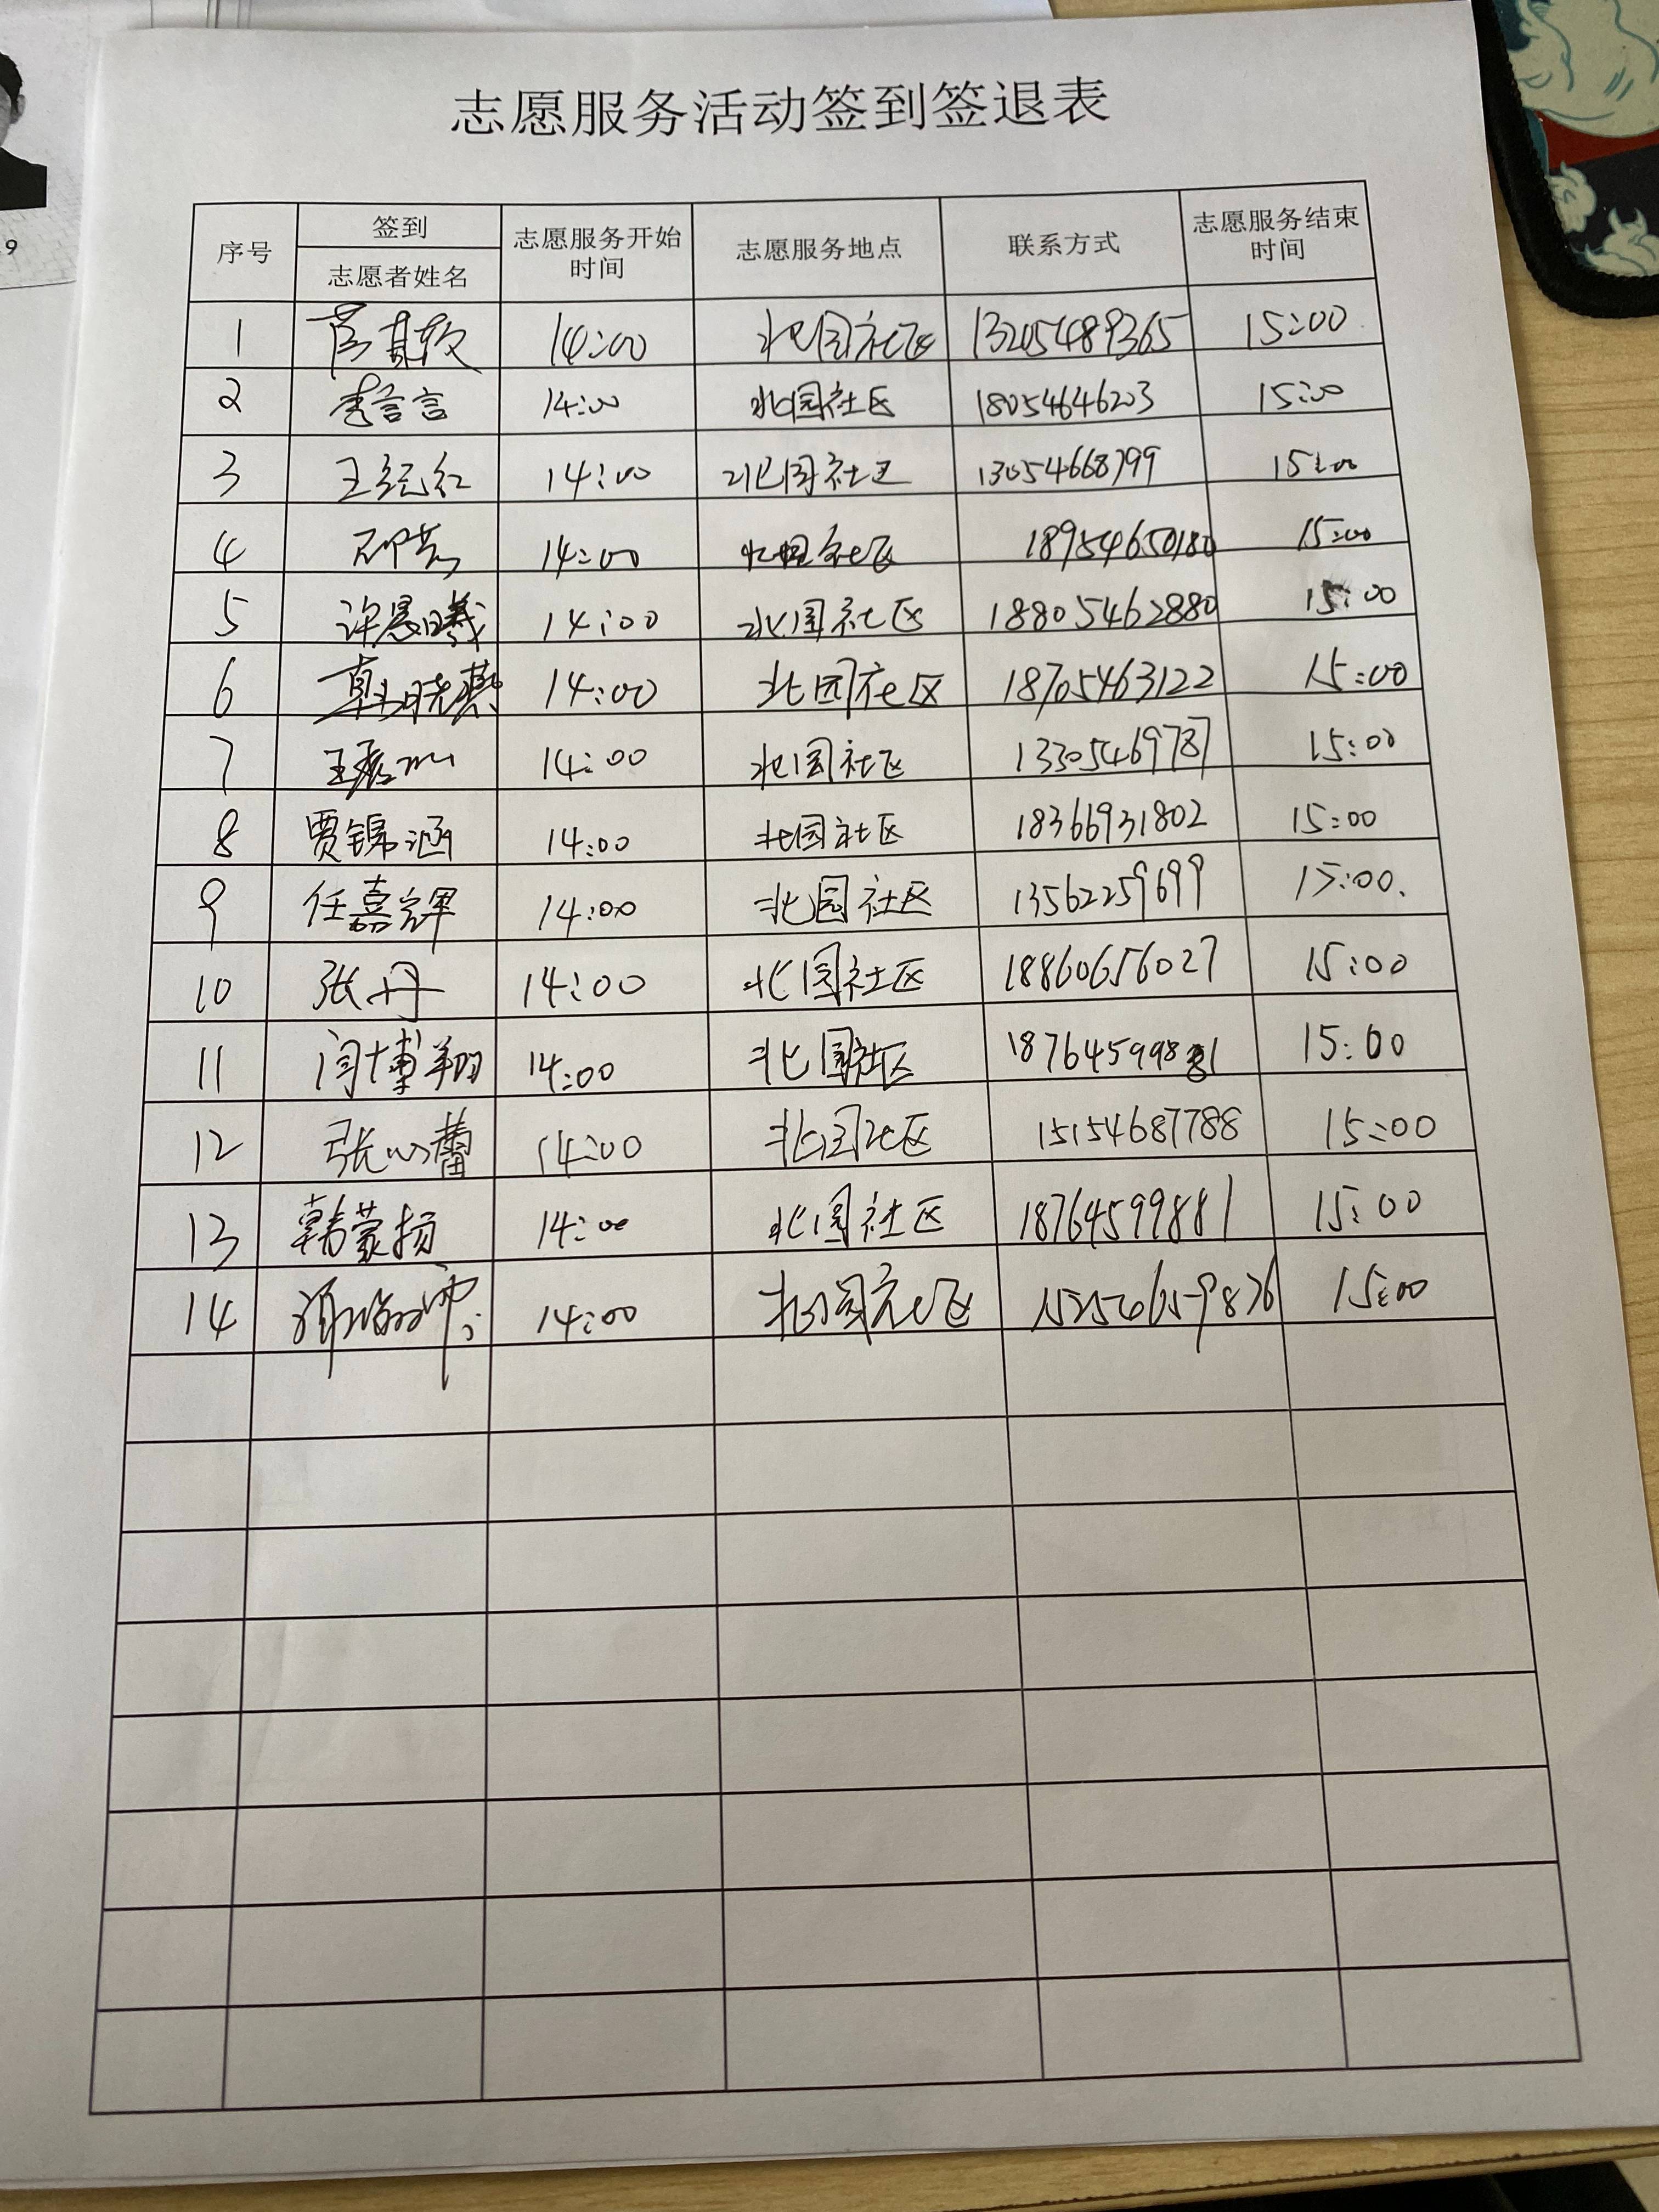 志愿服务活动签到签退表
序号 签到 志愿者姓名 志愿服务开始时间 志愿服务地点 联系方式 志愿服务结束时间
1 14:00 北园社区 13205489365 15:00
2 李言言 14:00 北园社区 18054646203 15:00
3 王纪红 14:00 北园社区 13054668799 15:00
4 邓芳 14:00 北园社区 18954650180 15:00
5 许晨曦 14:00 北园社区 18805462880 15:00
6 韩晓燕 14:00 北园社区 18705463122 15:00
7 王 14:00 北园社区 13305469787 15:00
8 贾锦涵 14:00 北园社区 18366931802 15:00
9 任嘉辉 14:00 北园社区 13562259699 15:00.
10 张丹 14:00 北园社区 18860656027 15:00
11 闫博翔 14:00 北园社区 15:00
12 张心蕾 14:00 北园社区 15154687788 15:00
13 韩蒙扬 14:00 北园社区 18764599881 15:00
14 14:00 北园社区 15:00
9